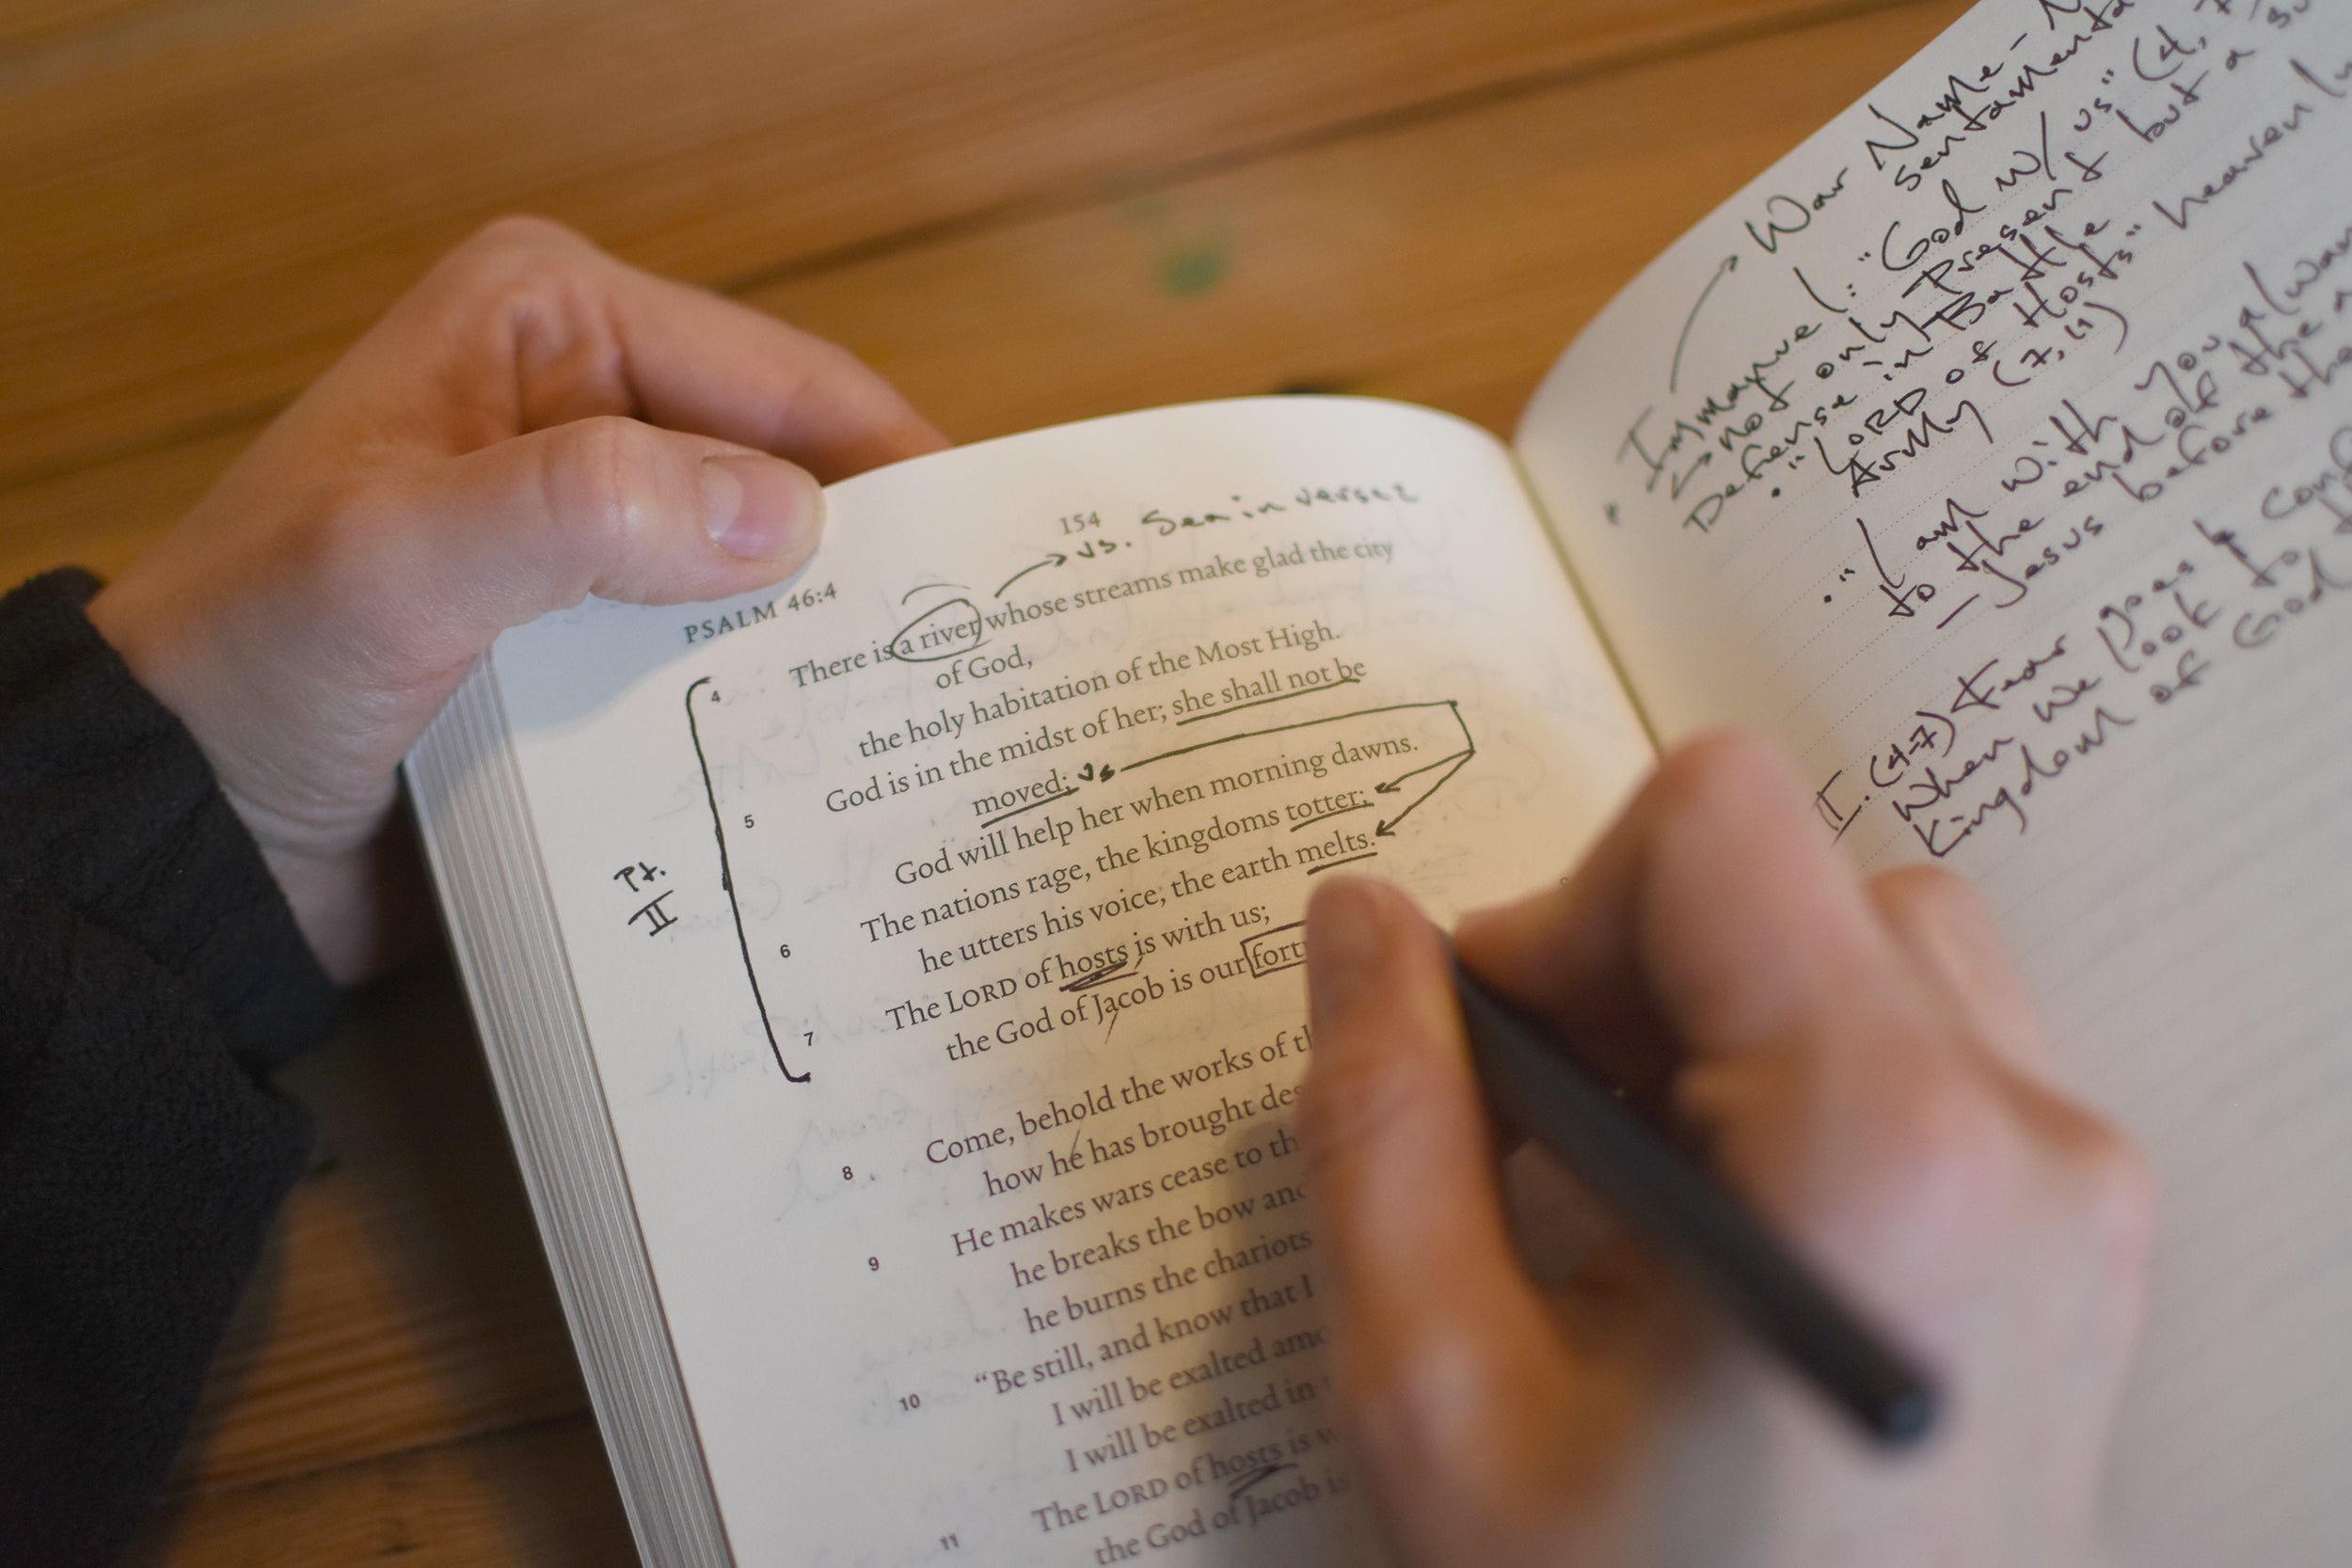 154
vs. Sea in verse 2
PSALM 46:4
4 There is a river whose streams make glad the city
of God,
the holy habitation of the Most High.
5 God is in the midst of her; she shall not be
moved; vs
God will help her when morning dawns.
6 The nations rage, the kingdoms totter;
he utters his voice, the earth melts.
7 The LORD of hosts is with us;
the God of Jacob is our
Pt.
II
8 Come, behold the works of
how he has brought
9 He makes wars cease to
he breaks the bow and
he burns the chariots
10 “Be still, and know that I
I will be exalted
I will be exalted in
11 The LORD of hosts is
the God of Jacob is
War Name-
"Immanuel": "God w/ us" (4,
not only Present but a
Defense in Battle
• "LORD of Hosts" heaven
Army (7, 11)
• "I am with you
to the end of the
- Jesus before the
II. (4-7) Fear goes
When we look to
Kingdom of God